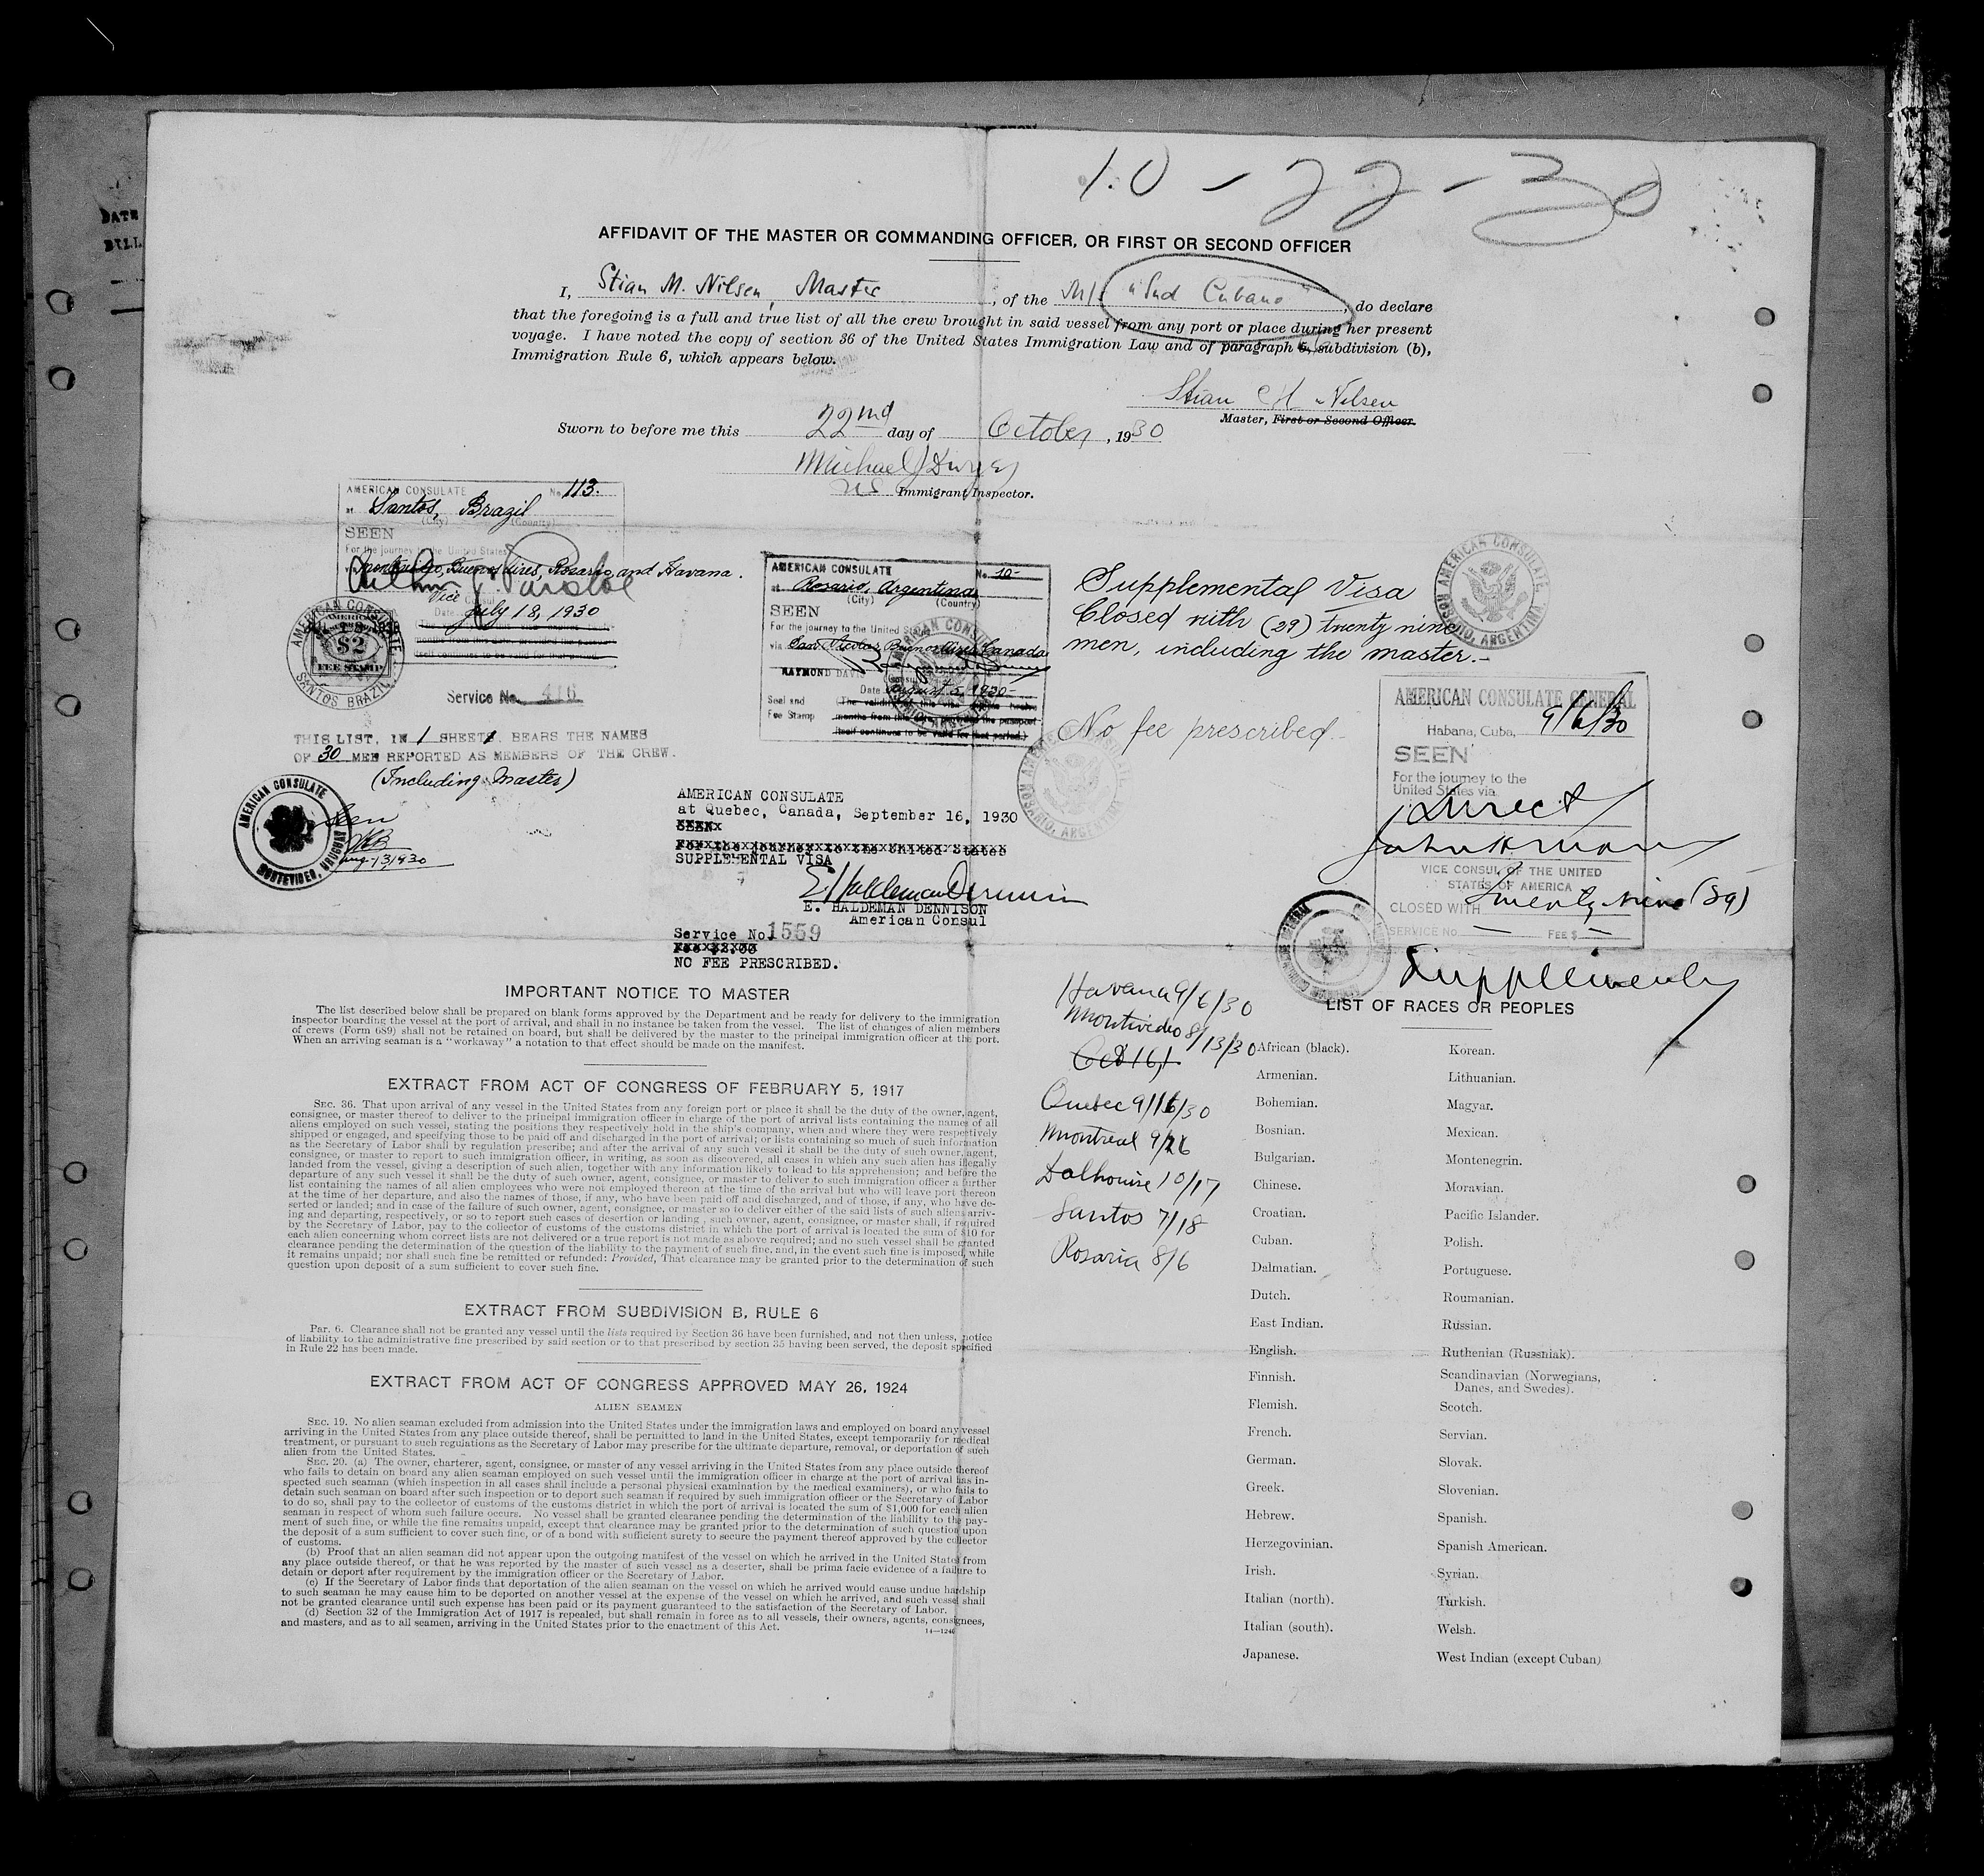 DATE
10-22-30
AFFIDAVIT OF THE MASTER OR COMMANDING OFFICER, OR FIRST OR SECOND OFFICER
I, Stian M. Nilsen, Master, of the M/S "Sud Cubano", do declare
that the foregoing is a full and true list of all the crew brought in said vessel from any port or place during her present
voyage. I have noted the copy of section 36 of the United States Immigration Law and of paragraph 6, subdivision (b),
Immigration Rule 6, which appears below.
Stian M Nilsen
Master, First or Second Officer.
Sworn to before me this 22nd day of October, 1930
Michael J Dwyer
US Immigrant Inspector.
AMERICAN CONSULATE No. 113.
at Santos, Brazil
(City) (Country)
SEEN
For the journey to the United States
via Montevideo, Buenos Aires, Rosario and Havana.
Vice Consul
Date July 18, 1930
AMERICAN CONSULATE
$2
FEE STAMP
SANTOS BRAZIL
Service No. 416
THIS LIST, IN 1 SHEET, BEARS THE NAMES
OF 30 MEN REPORTED AS MEMBERS OF THE CREW.
(Including Master)
AMERICAN CONSULATE
MONTEVIDEO, URUGUAY
Seen
Aug-13/930
AMERICAN CONSULATE No. 10-
at Rosario, Argentina
(City) (Country)
SEEN
For the journey to the United States
via San Nicolas, Buenos Aires, Canada
RAYMOND DAVIS
Date August 5, 1930-
Seal and (The validity of this visa expires twelve
Fee Stamp months from this date, provided the passport
itself continues to be valid for that period.)
Supplemental Visa
Closed with (29) twenty nine
men, including the master.-
No fee prescribed.-
AMERICAN CONSULATE,
ROSARIO, ARGENTINA
AMERICAN CONSULATE,
ROSARIO, ARGENTINA
AMERICAN CONSULATE GENERAL
Habana, Cuba, 9/6/30
SEEN
For the journey to the
United States via
Direct
VICE CONSUL OF THE UNITED
STATES OF AMERICA
CLOSED WITH Twenty Nine (29)
SERVICE No. — FEE $ —
Supplementary
AMERICAN CONSULATE
at Quebec, Canada, September 16, 1930
SEEN
For the journey to the United States
SUPPLEMENTAL VISA
E. Haldeman Dennison
E. HALDEMAN DENNISON
American Consul
Service No. 1559
Fee $2.00
NO FEE PRESCRIBED.
IMPORTANT NOTICE TO MASTER
The list described below shall be prepared on blank forms approved by the Department and be ready for delivery to the immigration
inspector boarding the vessel at the port of arrival, and shall in no instance be taken from the vessel. The list of changes of alien members
of crews (Form 689) shall not be retained on board, but shall be delivered by the master to the principal immigration officer at the port.
When an arriving seaman is a "workaway" a notation to that effect should be made on the manifest.
EXTRACT FROM ACT OF CONGRESS OF FEBRUARY 5, 1917
SEC. 36. That upon arrival of any vessel in the United States from any foreign port or place it shall be the duty of the owner, agent,
consignee, or master thereof to deliver to the principal immigration officer in charge of the port of arrival lists containing the names of all
aliens employed on such vessel, stating the positions they respectively hold in the ship's company, when and where they were respectively
shipped or engaged, and specifying those to be paid off and discharged in the port of arrival; or lists containing so much of such information
as the Secretary of Labor shall by regulation prescribe; and after the arrival of any such vessel it shall be the duty of such owner, agent,
consignee, or master to report to such immigration officer, in writing, as soon as discovered, all cases in which any such alien has illegally
landed from the vessel, giving a description of such alien, together with any information likely to lead to his apprehension; and before the
departure of any such vessel it shall be the duty of such owner, agent, consignee, or master to deliver to such immigration officer a further
list containing the names of all alien employees who were not employed thereon at the time of the arrival but who will leave port thereon
at the time of her departure, and also the names of those, if any, who have been paid off and discharged, and of those, if any, who have de-
serted or landed; and in case of the failure of such owner, agent, consignee, or master so to deliver either of the said lists of such aliens arriv-
ing and departing, respectively, or so to report such cases of desertion or landing, such owner, agent, consignee, or master shall, if required
by the Secretary of Labor, pay to the collector of customs of the customs district in which the port of arrival is located the sum of $10 for
each alien concerning whom correct lists are not delivered or a true report is not made as above required; and no such vessel shall be granted
clearance pending the determination of the question of the liability to the payment of such fine, and, in the event such fine is imposed, while
it remains unpaid; nor shall such fine be remitted or refunded: Provided, That clearance may be granted prior to the determination of such
question upon deposit of a sum sufficient to cover such fine.
EXTRACT FROM SUBDIVISION B, RULE 6
PAR. 6. Clearance shall not be granted any vessel until the lists required by Section 36 have been furnished, and not then unless, notice
of liability to the administrative fine prescribed by said section or to that prescribed by section 35 having been served, the deposit specified
in Rule 22 has been made.
EXTRACT FROM ACT OF CONGRESS APPROVED MAY 26, 1924
ALIEN SEAMEN
SEC. 19. No alien seaman excluded from admission into the United States under the immigration laws and employed on board any vessel
arriving in the United States from any place outside thereof, shall be permitted to land in the United States, except temporarily for medical
treatment, or pursuant to such regulations as the Secretary of Labor may prescribe for the ultimate departure, removal, or deportation of such
alien from the United States.
SEC. 20. (a) The owner, charterer, agent, consignee, or master of any vessel arriving in the United States from any place outside thereof
who fails to detain on board any alien seaman employed on such vessel until the immigration officer in charge at the port of arrival has in-
spected such seaman (which inspection in all cases shall include a personal physical examination by the medical examiners), or who fails to
detain such seaman on board after such inspection or to deport such seaman if required by such immigration officer or the Secretary of Labor
to do so, shall pay to the collector of customs of the customs district in which the port of arrival is located the sum of $1,000 for each alien
seaman in respect of whom such failure occurs. No vessel shall be granted clearance pending the determination of the liability to the pay-
ment of such fine, or while the fine remains unpaid, except that clearance may be granted prior to the determination of such question upon
the deposit of a sum sufficient to cover such fine, or of a bond with sufficient surety to secure the payment thereof approved by the collector
of customs.
(b) Proof that an alien seaman did not appear upon the outgoing manifest of the vessel on which he arrived in the United States from
any place outside thereof, or that he was reported by the master of such vessel as a deserter, shall be prima facie evidence of a failure to
detain or deport after requirement by the immigration officer or the Secretary of Labor.
(c) If the Secretary of Labor finds that deportation of the alien seaman on the vessel on which he arrived would cause undue hardship
to such seaman he may cause him to be deported on another vessel at the expense of the vessel on which he arrived, and such vessel shall
not be granted clearance until such expense has been paid or its payment guaranteed to the satisfaction of the Secretary of Labor.
(d) Section 32 of the Immigration Act of 1917 is repealed, but shall remain in force as to all vessels, their owners, agents, consignees,
and masters, and as to all seamen, arriving in the United States prior to the enactment of this Act.
14—1240
Havana 9/6/30
Montivedio 8/13/30
Quebec 9/16/30
Montreal 9/26
Dalhousie 10/17
Santos 7/18
Rosaria 8/6
LIST OF RACES OR PEOPLES
African (black).
Armenian.
Bohemian.
Bosnian.
Bulgarian.
Chinese.
Croatian.
Cuban.
Dalmatian.
Dutch.
East Indian.
English.
Finnish.
Flemish.
French.
German.
Greek.
Hebrew.
Herzegovinian.
Irish.
Italian (north).
Italian (south).
Japanese.
Korean.
Lithuanian.
Magyar.
Mexican.
Montenegrin.
Moravian.
Pacific Islander.
Polish.
Portuguese.
Roumanian.
Russian.
Ruthenian (Russniak).
Scandinavian (Norwegians,
Danes, and Swedes).
Scotch.
Servian.
Slovak.
Slovenian.
Spanish.
Spanish American.
Syrian.
Turkish.
Welsh.
West Indian (except Cuban)